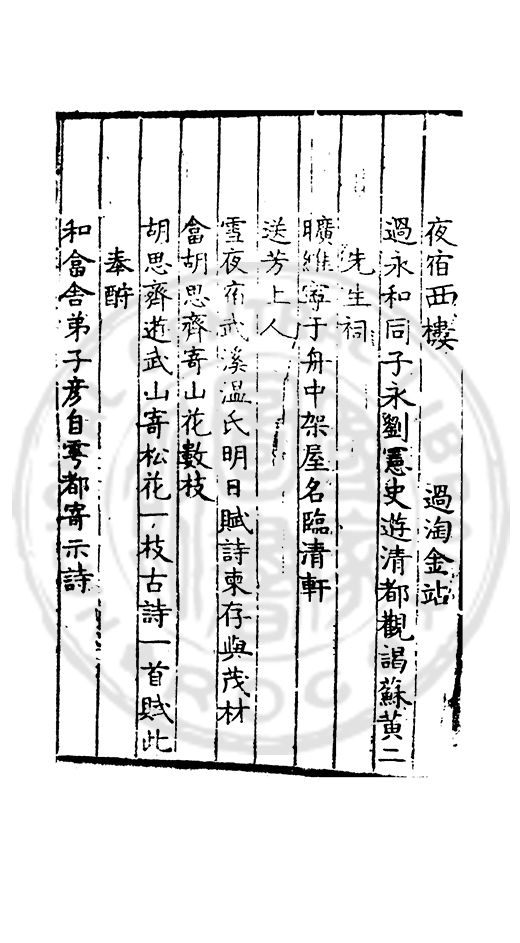 夜宿西樓　過淘金站
過永和同子永劉憲史遊清都觀謁蘇黃二
先生祠
曠維寧于舟中架屋名臨清軒
送芳上人
雪夜宿武溪温氏明日賦詩柬存與茂材
畣胡思齊寄山花數枝
胡思齊遊武山寄松花一枝古詩一首賦此
奉酧
和畣舎弟子彦自雩都寄示詩